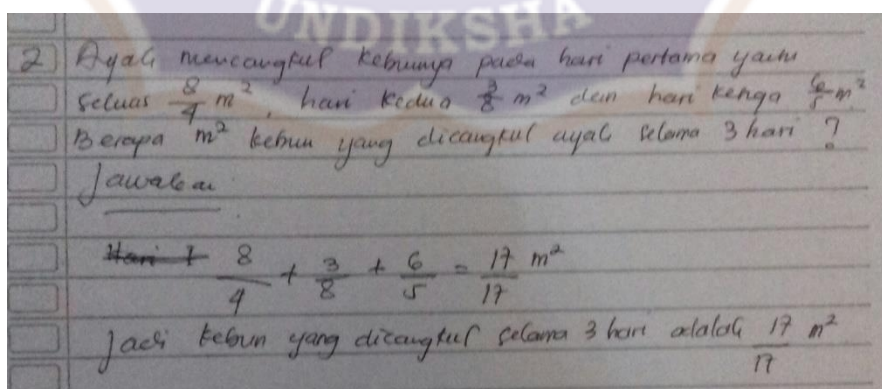 UNDIKSHA
2 Ayah mencangkul kebunnya pada hari pertama yaitu
seluas 8/4 m², hari kedua 3/8 m² dan hari ketiga 6/5 m²
Berapa m² kebun yang dicangkul ayah selama 3 hari ?
Jawaban
Hari I 8/4 + 3/8 + 6/5 = 17/17 m²
Jadi kebun yang dicangkul selama 3 hari adalah 17/17 m²